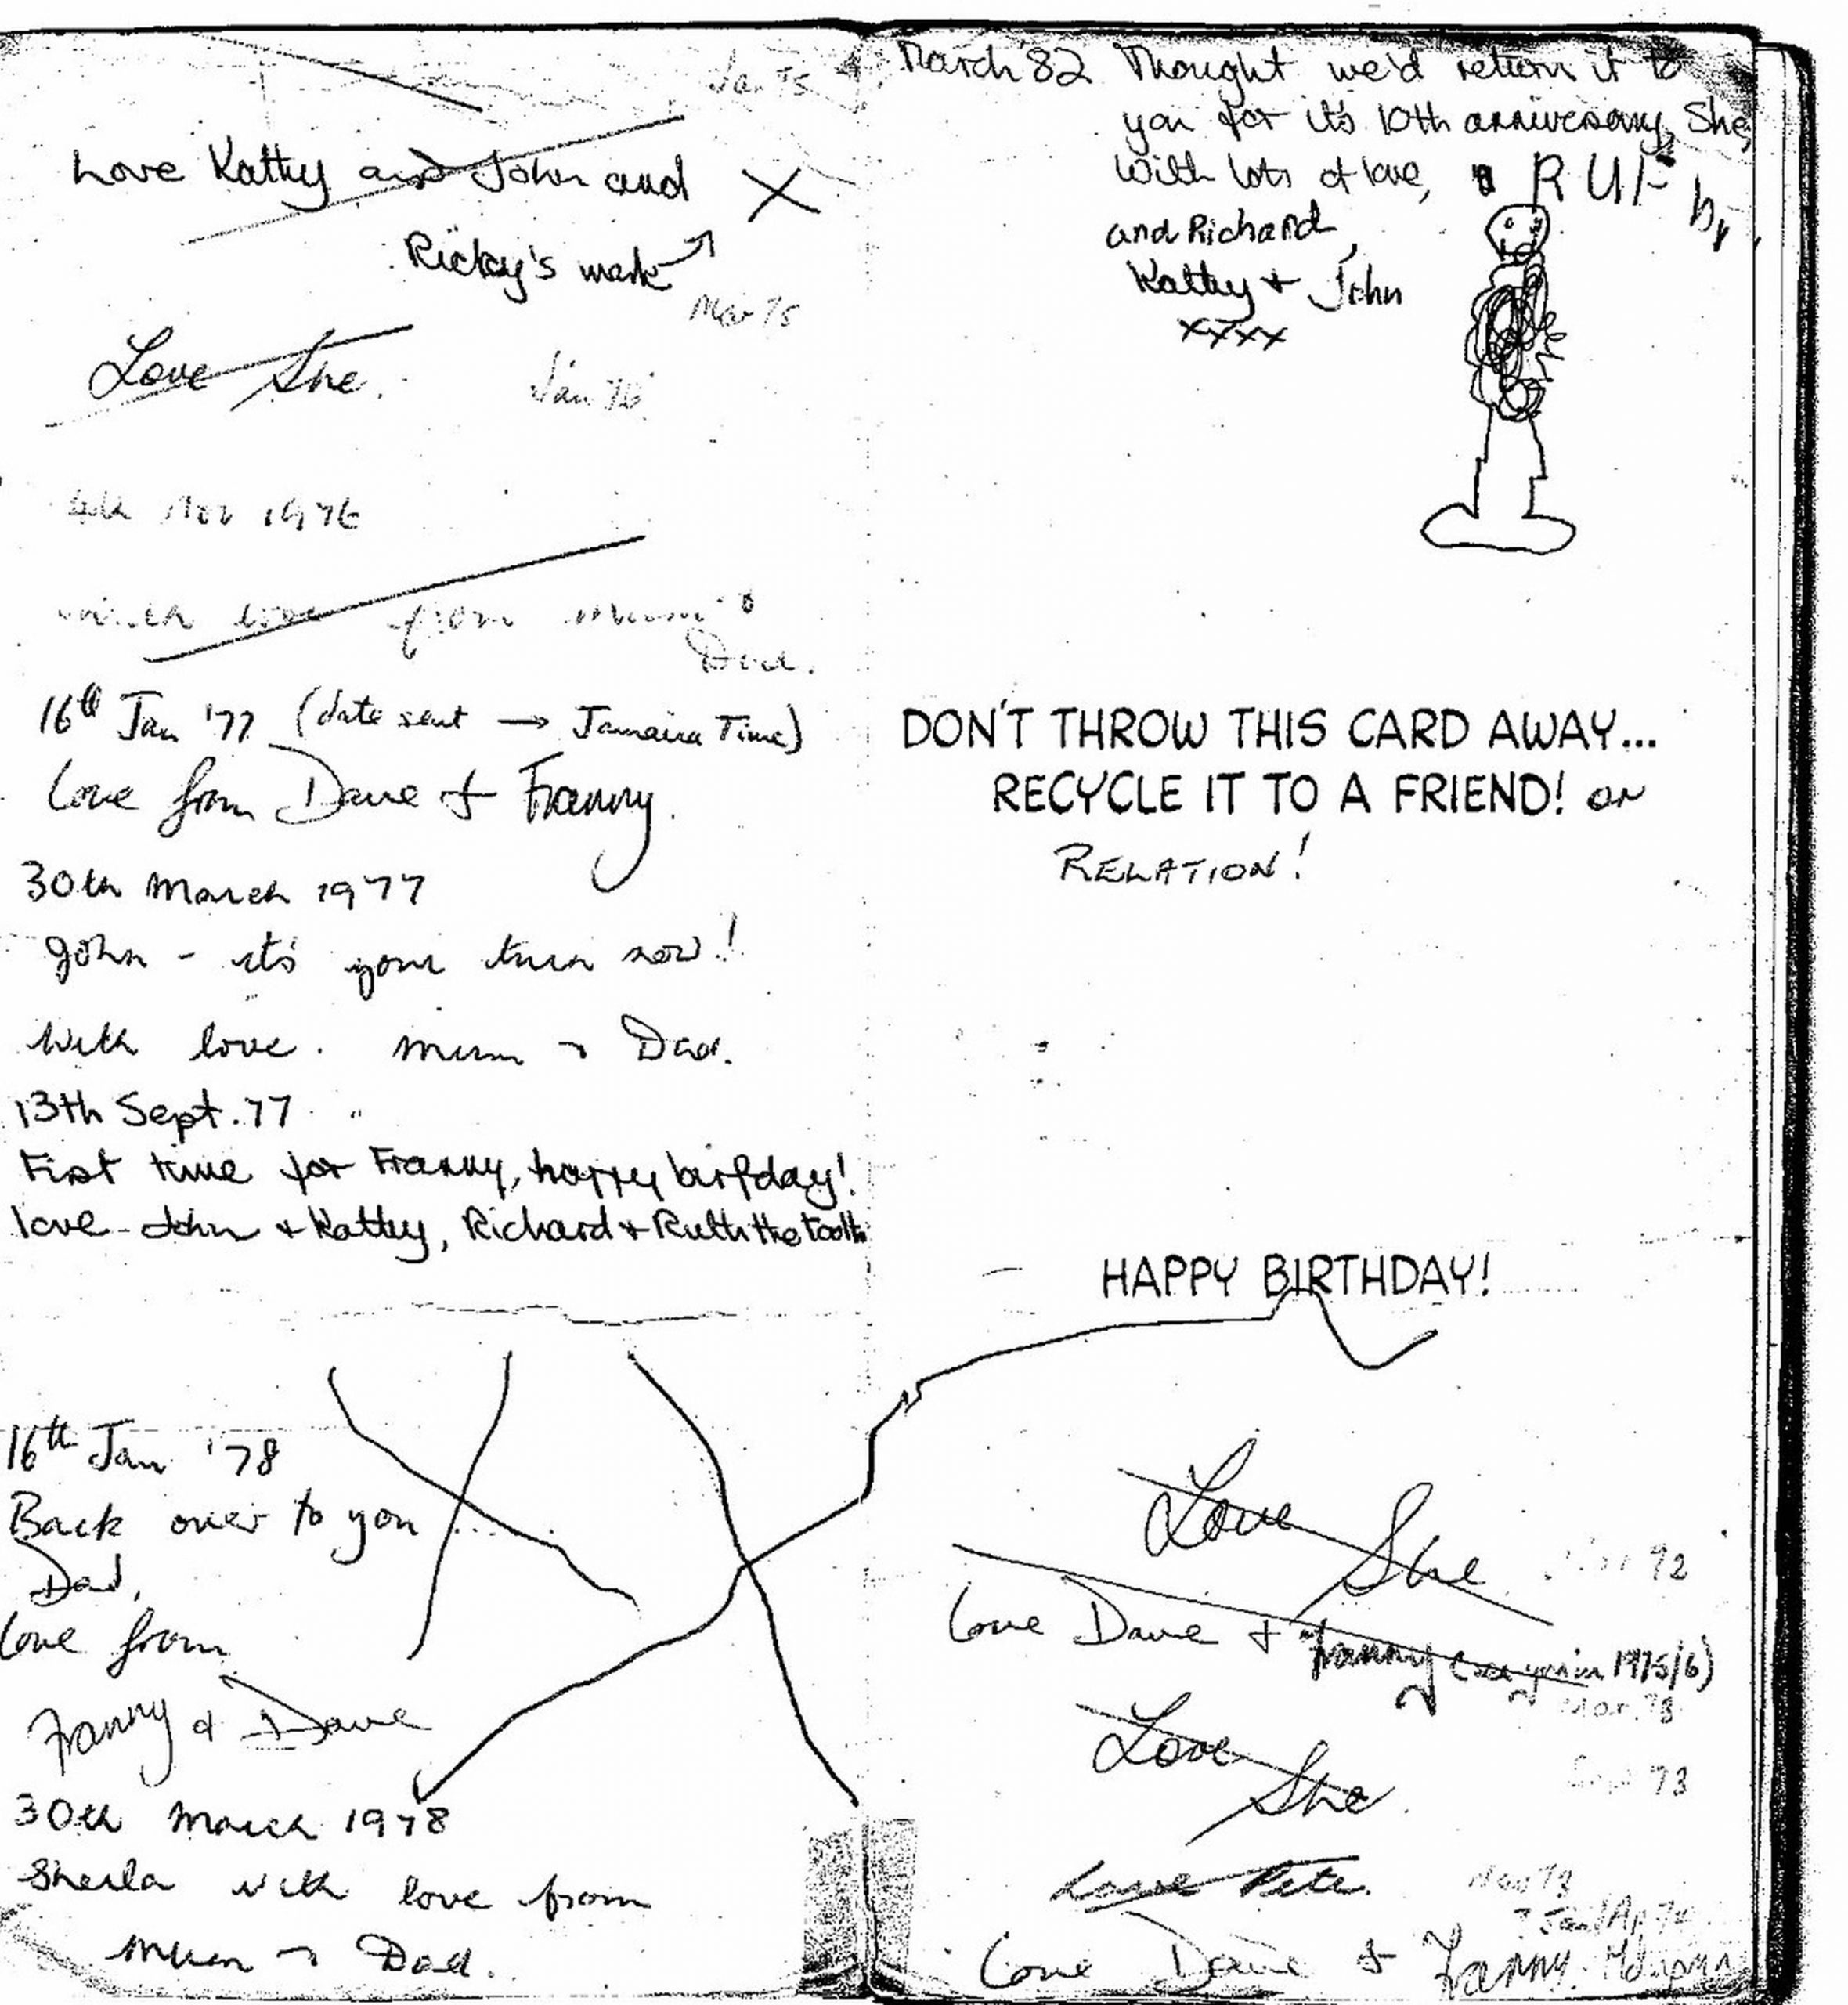 Jan 75
Love Kathy and John and X
Ricky's mark
Mar 75
Love She.
Jan 76
4th Nov 1976
with love from Mum &
Dad.
16th Jan '77 (date sent → Jamaica Time)
Love from Dave & Franny.
30th March 1977
John - it's your turn now!
With love. Mum & Dad.
13th Sept. 77
First time for Franny, happy birfday!
love - John + Kathy, Richard + Ruth the tooth
16th Jan '78
Back over to you ....
Dad,
Love from
Franny & Dave
30th March 1978
Sheila with love from
Mum & Dad.
March '82 Thought we'd return it to
you for it's 10th anniversary, She,
With lots of love,
and Richard,
Kathy + John
xxxx
DON'T THROW THIS CARD AWAY...
RECYCLE IT TO A FRIEND! or
RELATION!
HAPPY BIRTHDAY!
Love
She
Love Dave & Franny 1975/6)
Love
She
Sept 73
Love Pete.
Nov 73
Love Dave & Franny.